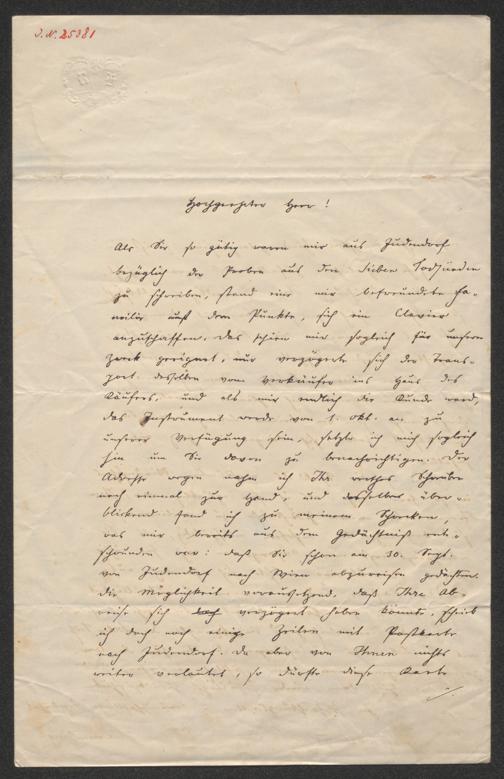 J.N. 25381
Hochgeehrter Herr!
Als Sie so gütig waren mir aus Judendorf
bezüglich der Proben aus den Sieben Todsünden
zu schreiben, stand eine mir befreundete Fa-
milie auf dem Punkte, sich ein Clavier
anzuschaffen. Das schien mir sogleich für unseren
Zweck geeignet, nur verzögerte sich der Trans-
port desselben vom Verkäufer ins Haus des
Käufers, und als mir endlich die Kunde ward,
das Instrument werde vom 1. Okt. an zu
unserer Verfügung sein, setzte ich mich sogleich
hin um Sie davon zu benachrichtigen. Der
Adresse wegen nahm ich Ihr werthes Schreiben
noch einmal zur Hand, und dasselbe über-
blickend fand ich zu meinem Schrecken,
was mir bereits aus dem Gedächtniß ent-
schwunden war: daß Sie schon am 30. Sept.
von Judendorf nach Wien abzureisen gedächten.
Die Möglichkeit voraussetzend, daß Ihre Ab-
reise sich doch verzögert haben könnte, schrieb
ich doch noch einige Zeilen mit Postkarte
nach Judendorf. Da aber von Ihnen nichts
weiter verlautet, so dürfte diese Karte